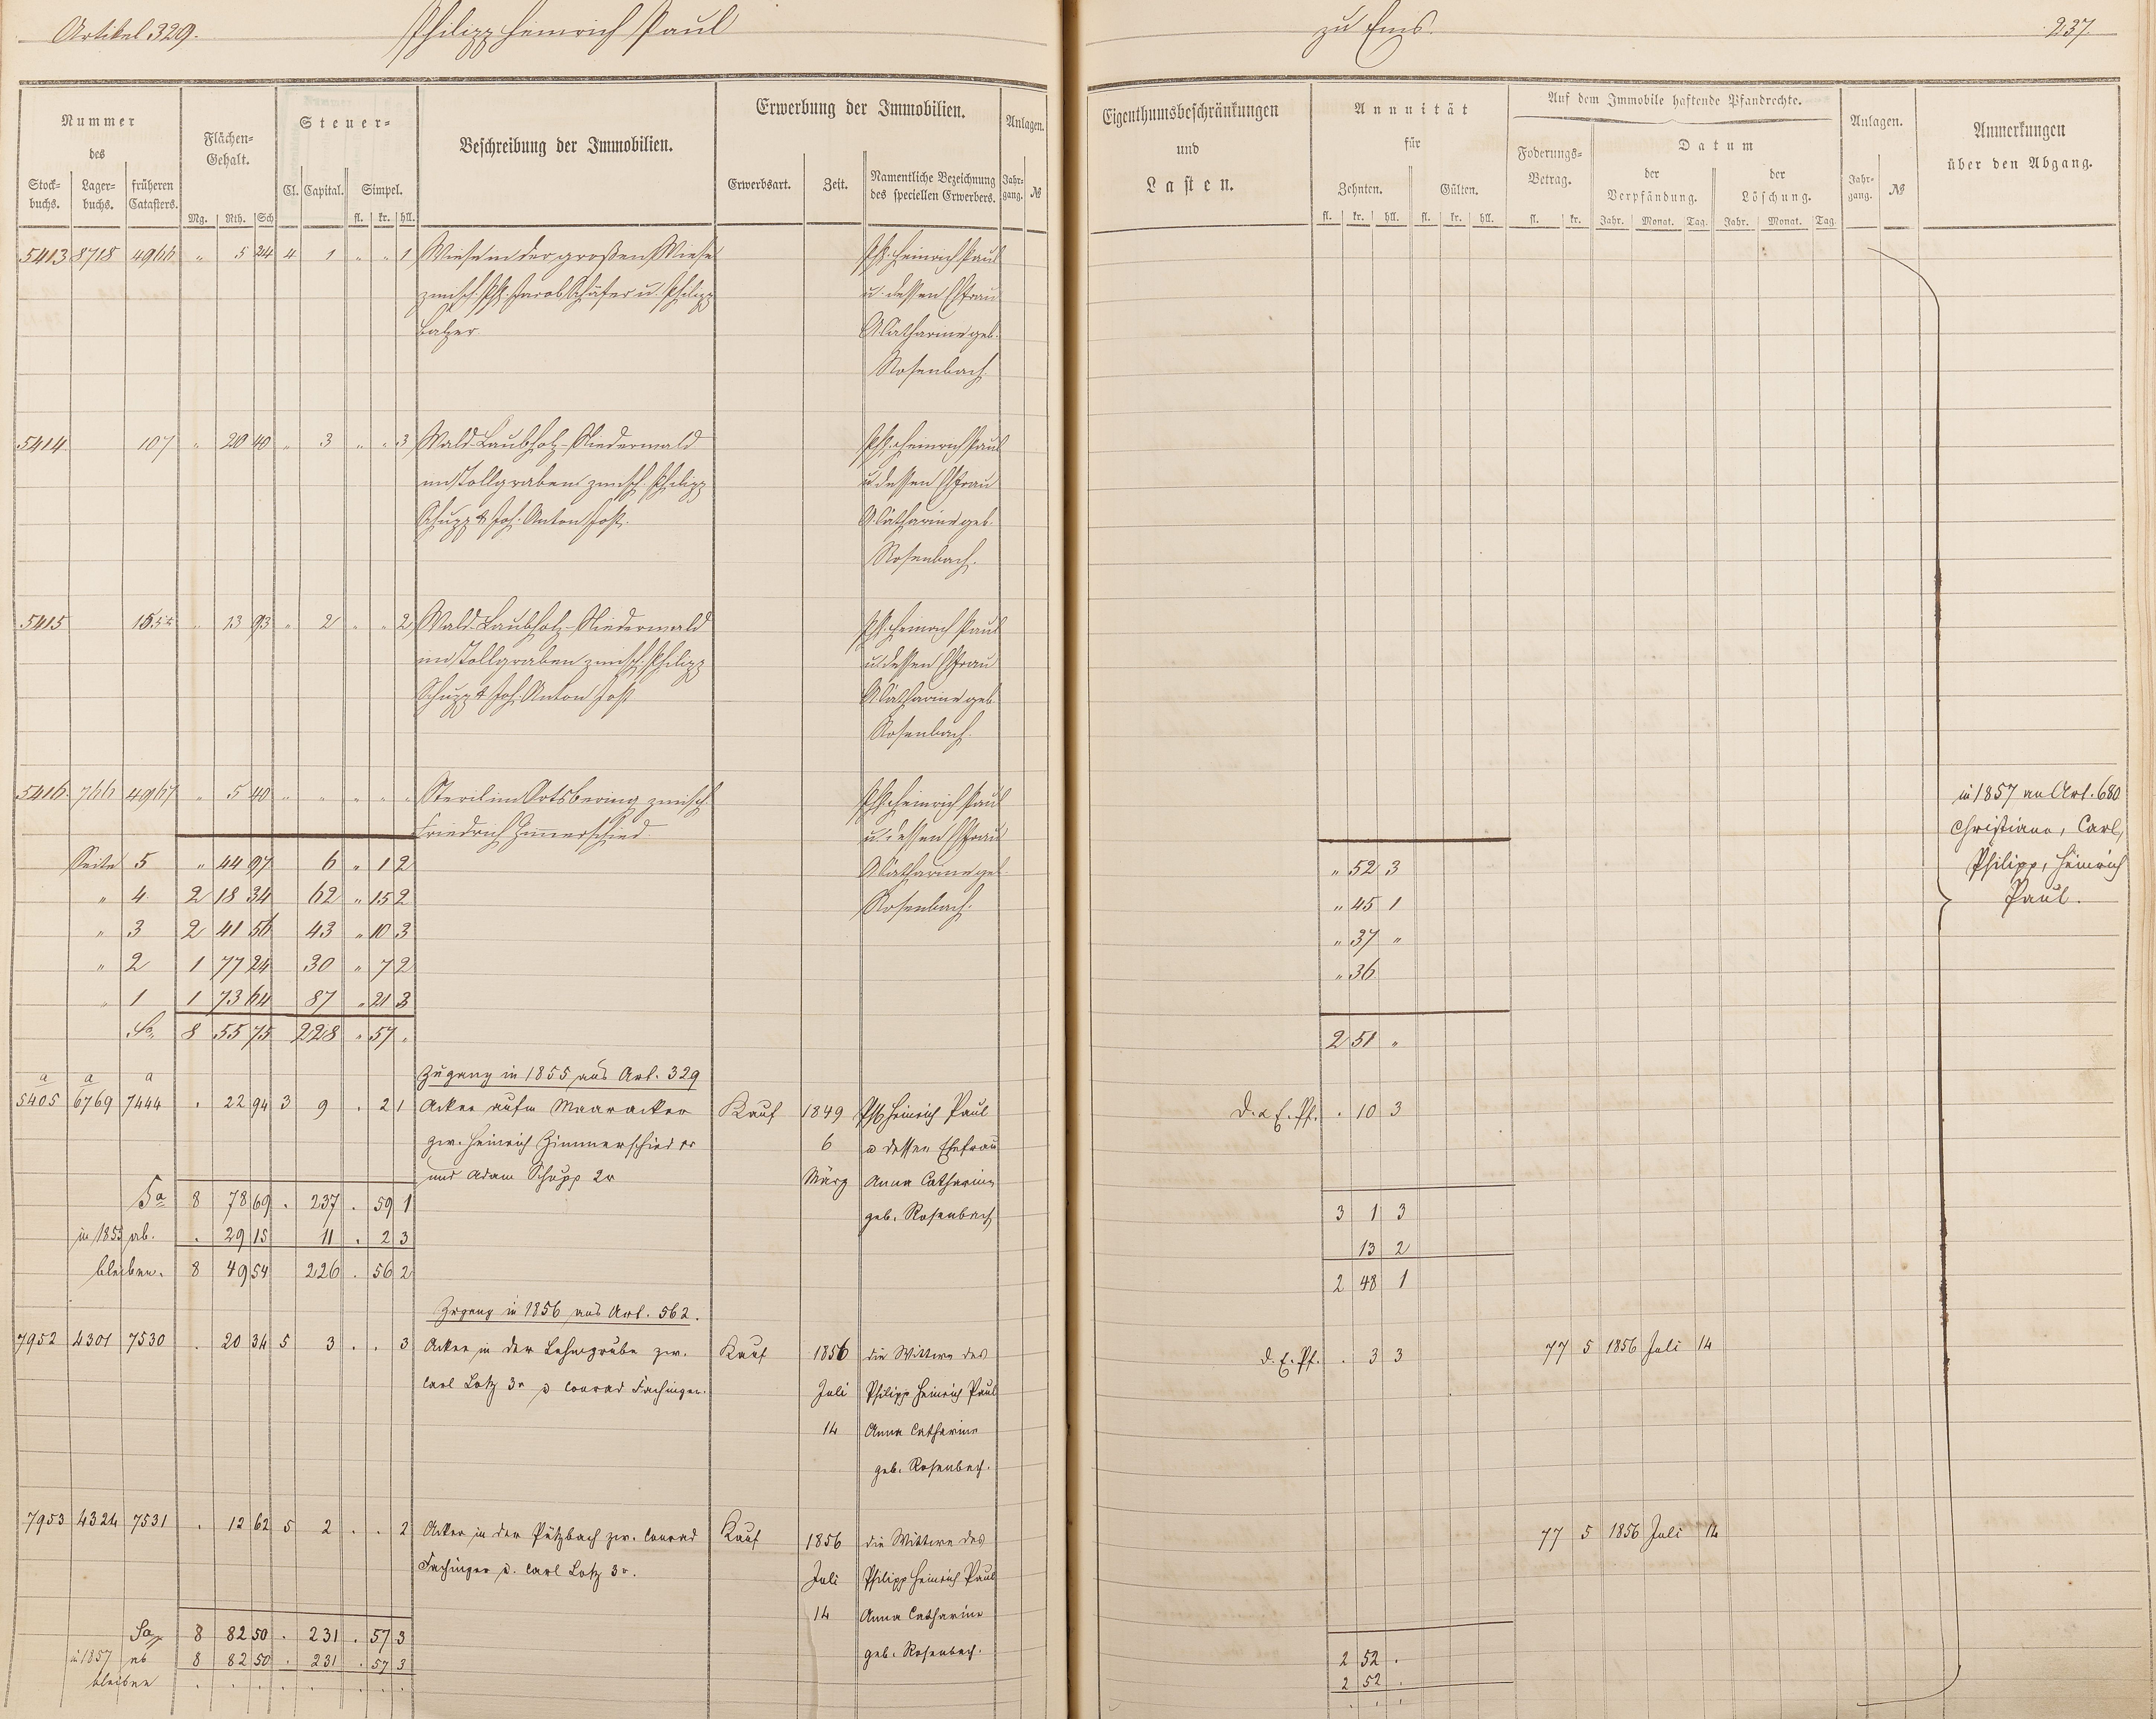 Artikel 329. Philipp Heinrich Paul zu Ems. 237.
Nummer des
Stockbuchs. Lagerbuchs. früheren Catasters.
Flächen-Gehalt.
Mg. Rth. Sch
Steuer-
Cl. Capital. Simpel.
fl. kr. hll.
Beschreibung der Immobilien.
Erwerbung der Immobilien.
Erwerbsart. Zeit. Namentliche Bezeichnung des speciellen Erwerbers.
Anlagen.
Jahrgang. №
Eigenthumsbeschränkungen
und
Lasten.
Annuität
für
Zehnten. Gülten.
fl. kr. hll. fl. kr. hll.
Auf dem Immobile haftende Pfandrechte.
Foderungs-Betrag.
fl. kr.
Datum
der Verpfändung. der Löschung.
Jahr. Monat. Tag. Jahr. Monat. Tag.
Anlagen.
Jahrgang. №
Anmerkungen
über den Abgang.
5413 8718 4966 " 5 24 4 1 " " 1 Wiese in der großen Wiese Ph. Heinrich Paul
zwisch. Ph. Jacob Schäfer u. Philipp u. dessen Ehfrau
Balzer. A Catharine geb.
Rosenbach.
5414 107 " 20 40 " 3 " " 3 Wald Laubholz-Niederwald Ph. Heinrich Paul
im Stollgraben zwisch. Philipp u. dessen Ehfrau
Schupp & Joh. Anton Jost. A. Catharine geb.
Rosenbach.
5415 " 13 93 " 2 " " 2 Wald-Laubholz-Niederwald Ph. Heinrich Paul
im Stollgraben zwisch. Philipp u. dessen Ehfrau
Schupp & Joh. Anton Jost A Catharine geb.
Rosenbach.
5416. 766 4967 " 5 40 " " " " " Steril im Ortsbering zwisch. Ph. Heinrich Paul in 1857 an Art. 680
Friedrich Zimmerschied u. dessen Ehfrau Christiane, Carl,
Seite 5 " 44 97 6 " 1 2 A Catharine geb. " 52 3 Philipp, Heinrich
" 4 2 18 34 62 " 15 2 Rosenbach. " 45 1 Paul.
" 3 2 41 56 43 " 10 3 " 37 "
" 2 1 77 24 30 " 7 2 " 36
" 1 1 73 64 87 " 21 3
Sa. 8 55 75 228 " 57 . 2 51 "
Zugang in 1855 aus Art. 329
a a a
5405 6769 7444 . 22 94 3 9 . 2 1 Acker aufm Maaracker Kauf 1849 Ph. Heinrich Paul D. & E. Pf. . 10 3
zw. Heinrich Zimmerschied 6 u dessen Ehefrau
und Adam Schupp 2r März Anna Catharina
Sa 8 78 69 . 237 . 59 1 geb. Rosenbach 3 1 3
in 1855 ab. . 29 15 11 . 2 3 13 2
bleiben. 8 49 54 226 . 56 2 2 48 1
Zugang in 1856 aus Art. 562.
7952 4301 7530 . 20 34 5 3 . . 3 Acker in der Lehmgrube zw. Kauf 1856 die Wittwe des d. E. Pf. . 3 3 77 5 1856 Juli 14
Carl Lotz 3r u Conrad Fachinger. Juli Philipp Heinrich Paul
14 Anna Catharine
geb. Rosenbach.
7953 4324 7531 . 12 62 5 2 . . 2 Acker in der Pützbach zw. Conrad Kauf 1856 die Wittwe des 77 5 1856 Juli 14
Fachinger u. Carl Lotz 3r. Juli Philipp Heinrich Paul
14 Anna Catharine
Sa 8 82 50 . 231 . 57 3 geb. Rosenbach. 2 52 .
in 1857 ab 8 82 50 . 231 . 57 3 2 52 .
bleiben . . . . . . . . . . .